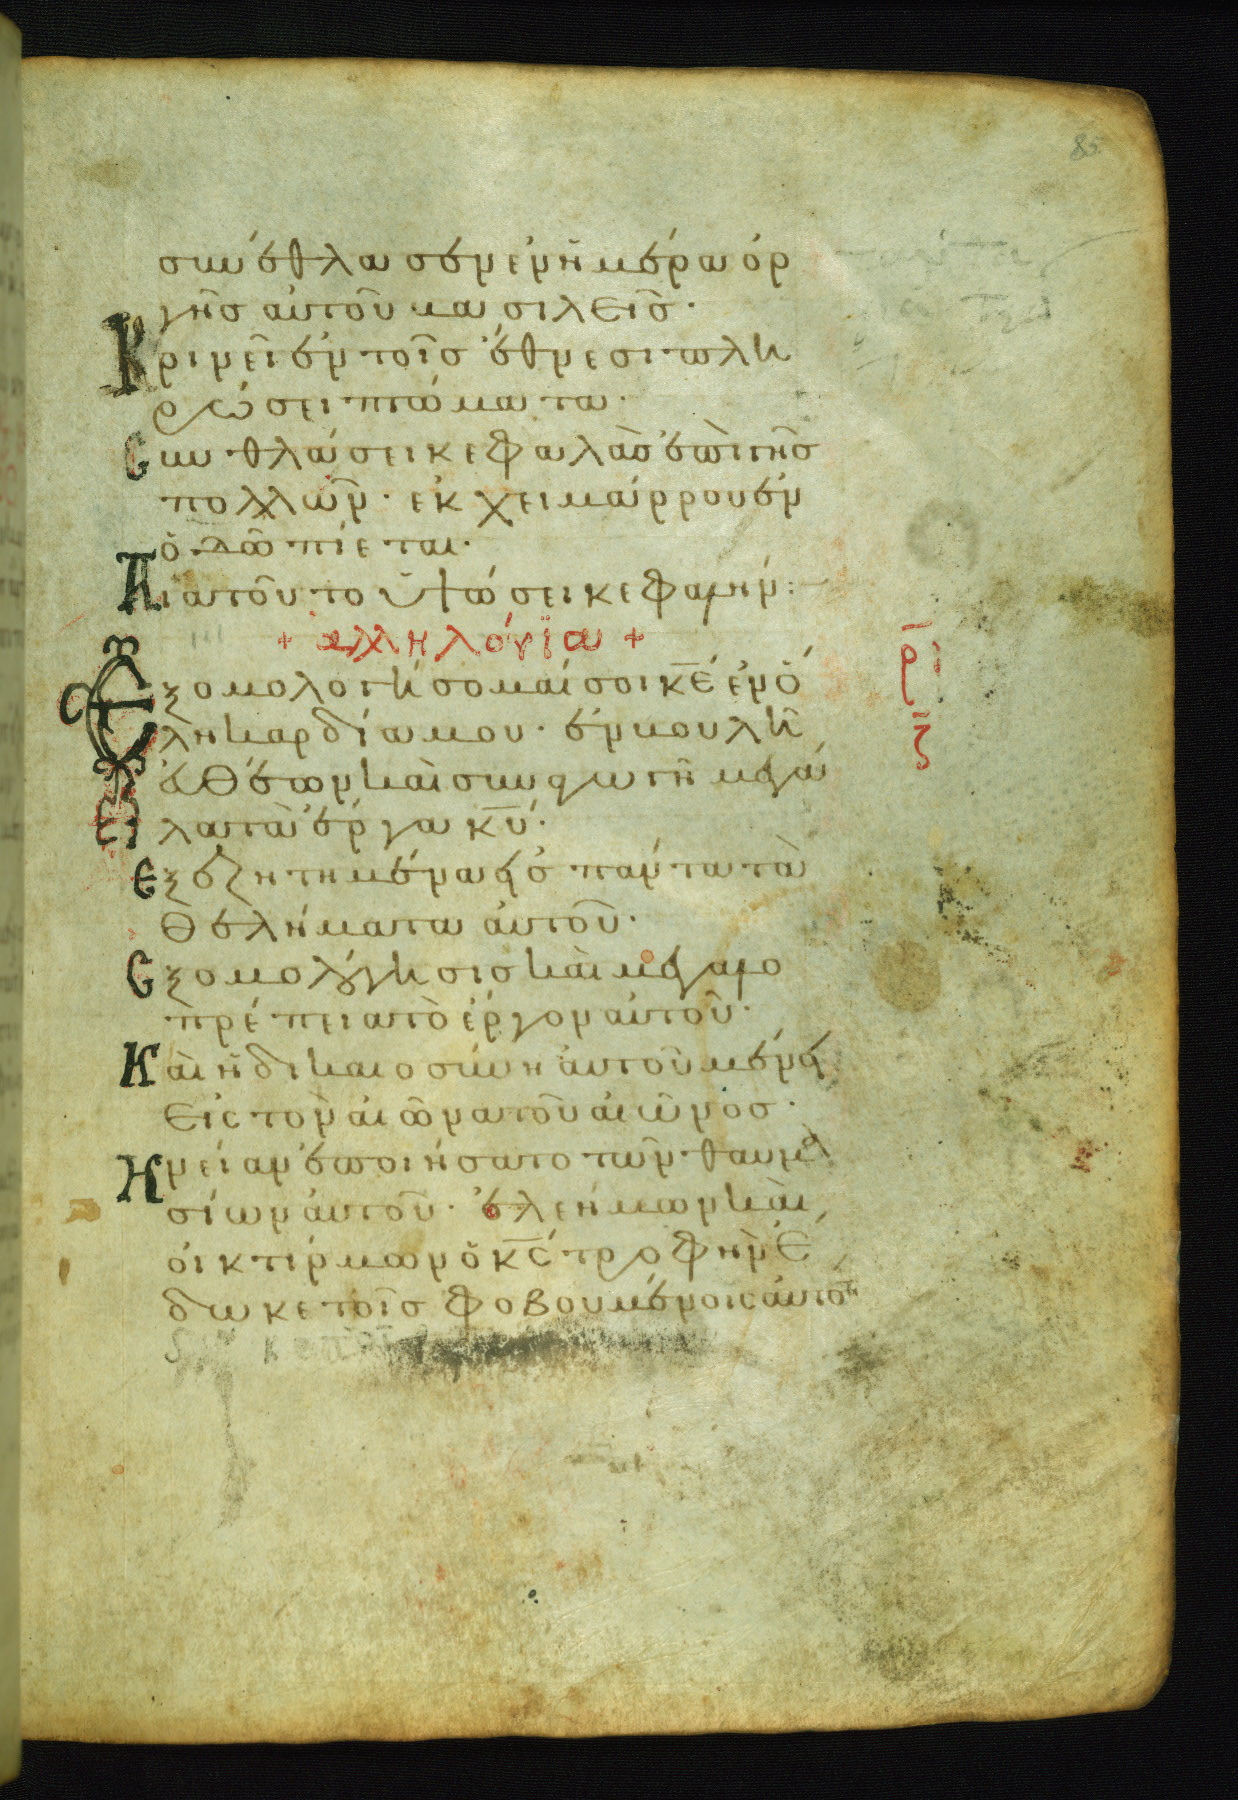 85
συνέθλασεν ἐν ἡμέρα ὀρ
γῆς αὐτοῦ βασιλεῖς·
Κρινεῖ ἐν τοῖς ἔθνεσι πλη
ρώσει πτώματα·
Συνθλάσει κεφαλὰς ἐπὶ γῆς
πολλῶν· ἐκ χειμάρρου ἐν
ὁδῶ πίεται·
Διατοῦτο ὑψώσει κεφαλήν:
+ ἀλληλούϊα +
Ἐξομολογήσομαί σοι κ̅ε̅ ἐν ὅ
ρ̅ι̅
λη καρδία μου· ἐν βουλῆ
ζ̅
εὐθέων καὶ συναγωγῆ μεγά
λα τὰ ἔργα κ̅υ̅·
Εξεζητημένα εἰς πάντα τὰ
θελήματα αὐτοῦ·
Εξομολόγησις καὶ μεγαλο
πρέπεια τὸ ἔργον αὐτοῦ·
Καὶ ἡ δικαιοσύνη αὐτοῦ μένει
εἰς τὸν αἰῶνα τοῦ αἰῶνος·
Μνείαν ἐποιήσατο τῶν θαυμα
σίων αὐτοῦ· ἐλεήμων καὶ
οἰκτίρμων ὁ κ̅ς̅ τροφὴν ἔ
δωκε τοῖς φοβουμένοις αὐτὸν